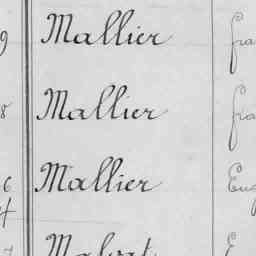 9 Mallier fra
8 Mallier fra
6 Mallier Eug
4
7 Malvat E